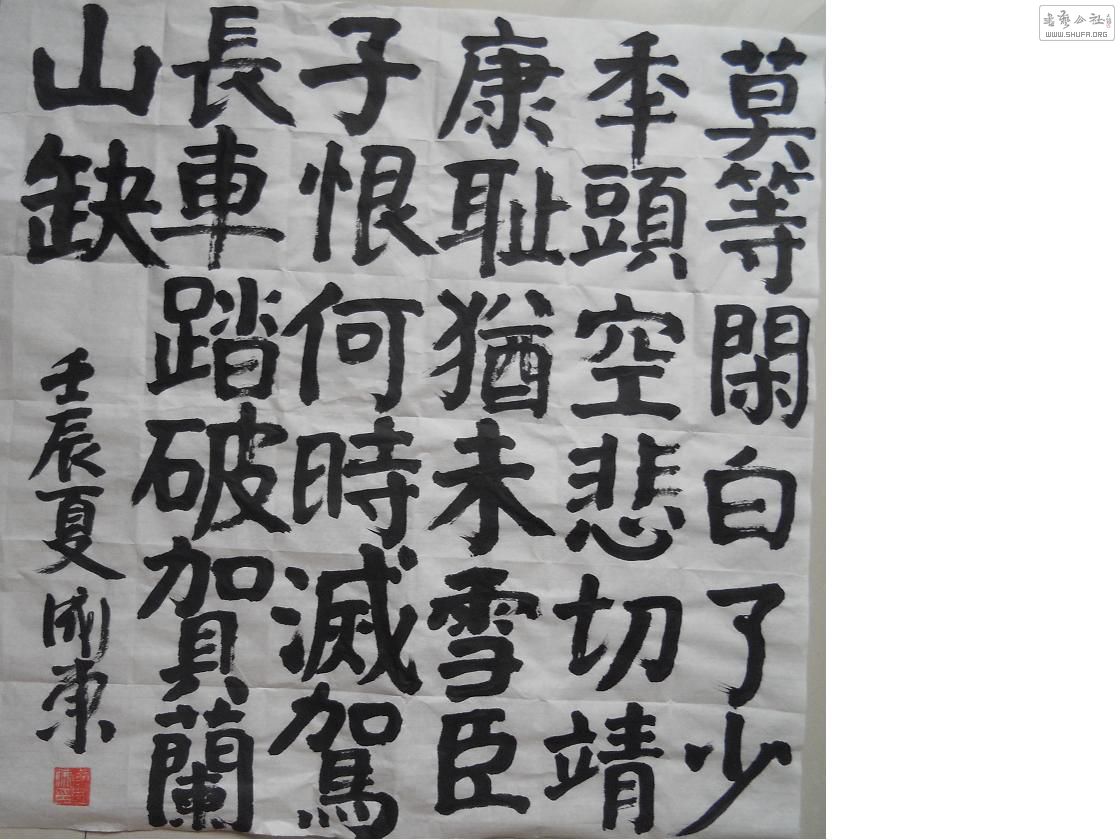 莫等閑白了少
年頭空悲切靖
康耻猶未雪臣
子恨何時滅駕
長車踏破賀蘭
山缺
壬辰夏成東
书艺公社
WWW.SHUFA.ORG